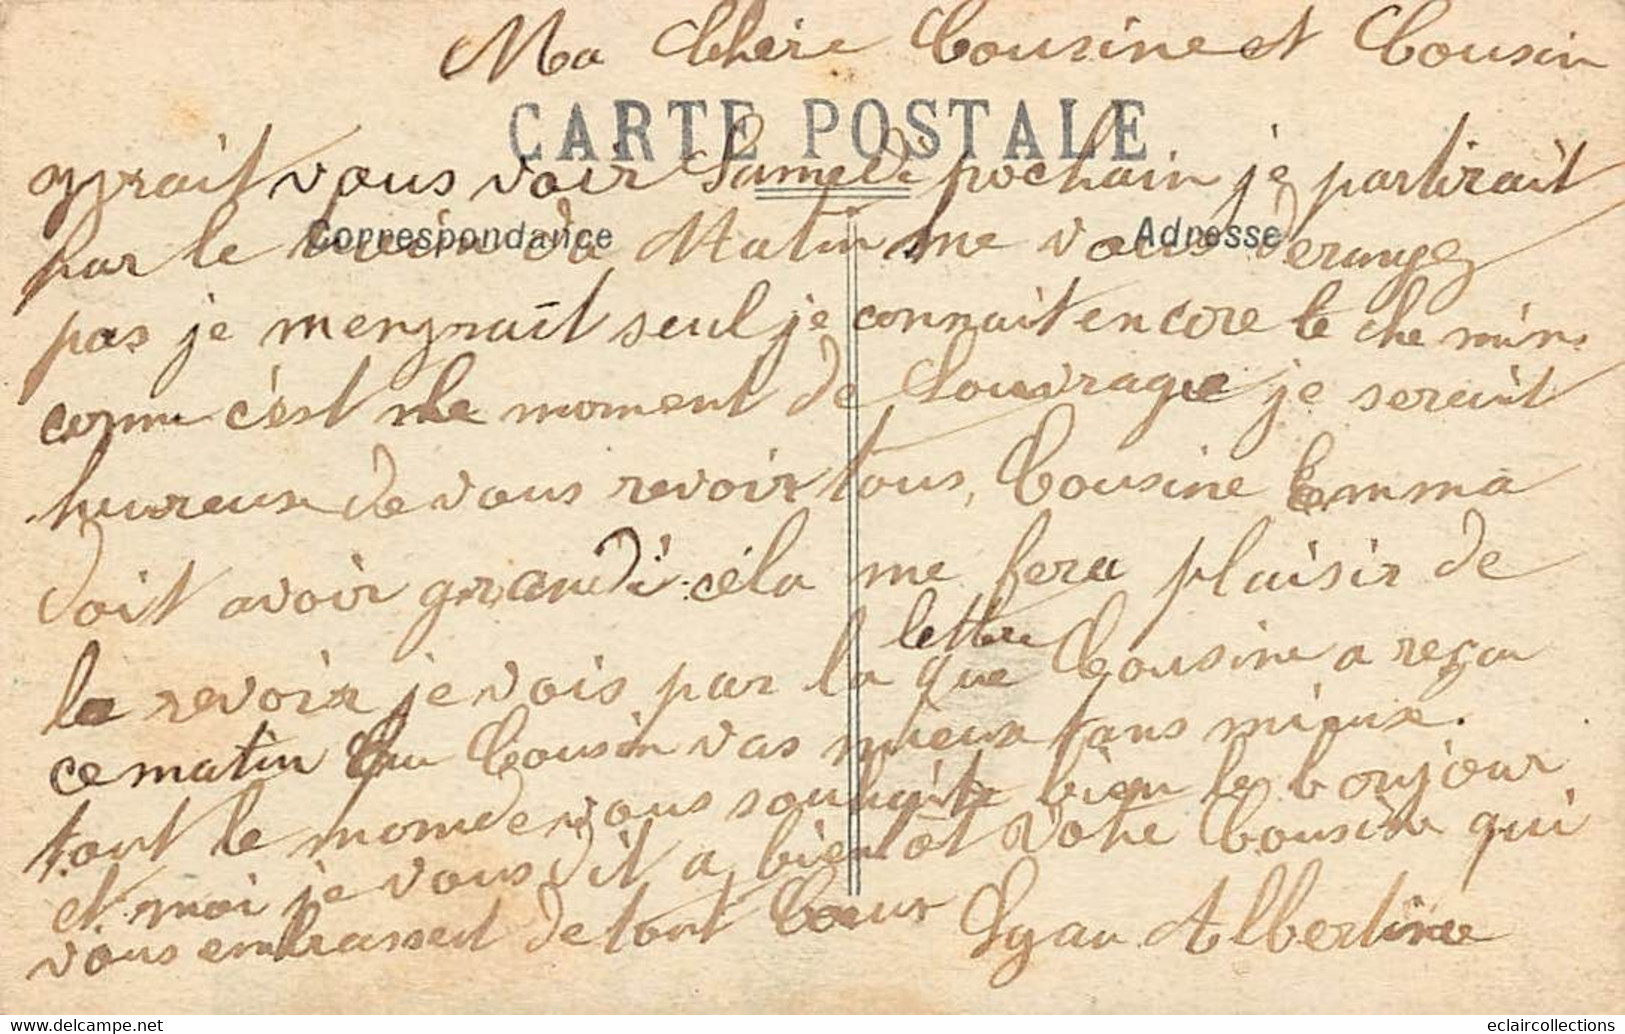 Ma Chère Cousine et Cousin
CARTE POSTALE
gyrait vous voir Samedi prochain je partirait
Correspondance
Adresse
par le train du Matin me vous deranger
pas je menyrait seul je connait encore le chemin
comm c'est le moment de Louvrague je serait
huureuse de vous revoir tous, Cousine Emma
doit avoir grandi céla me fera plaisir de
la revoir je vois par la lettre que Cousine a reçu
ce matin que Cousin vas mieux tans mieux.
tout le monde vous souhaite bien le bonjour
et moi je vous dit a bientot votre Cousine qui
vous embrassent de tout Coeur
Albertine
www.delcampe.net
eclaircollections